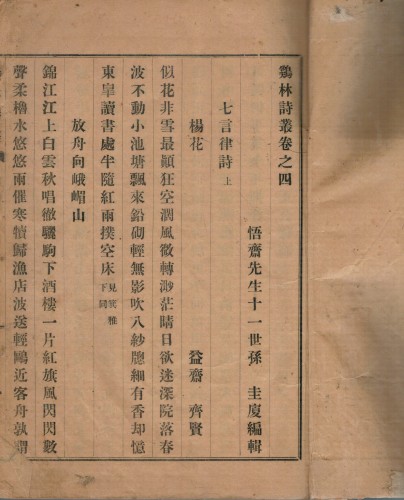 鷄林詩叢卷之四
悟齋先生十一世孫 圭廈編輯
七言律詩 上
楊花 益齋 齊賢
似花非雪最顚狂空濶風微轉渺茫晴日欲迷深院落春
波不動小池塘飄來鉛砌輕無影吹入紗牕細有香却憶
東皐讀書處半隨紅雨撲空床 見箕雅下同
放舟向峨嵋山
錦江江上白雲秋唱徹驪駒下酒樓一片紅旗風閃閃數
聲柔櫓水悠悠雨催寒犢歸漁店波送輕鷗近客舟孰謂